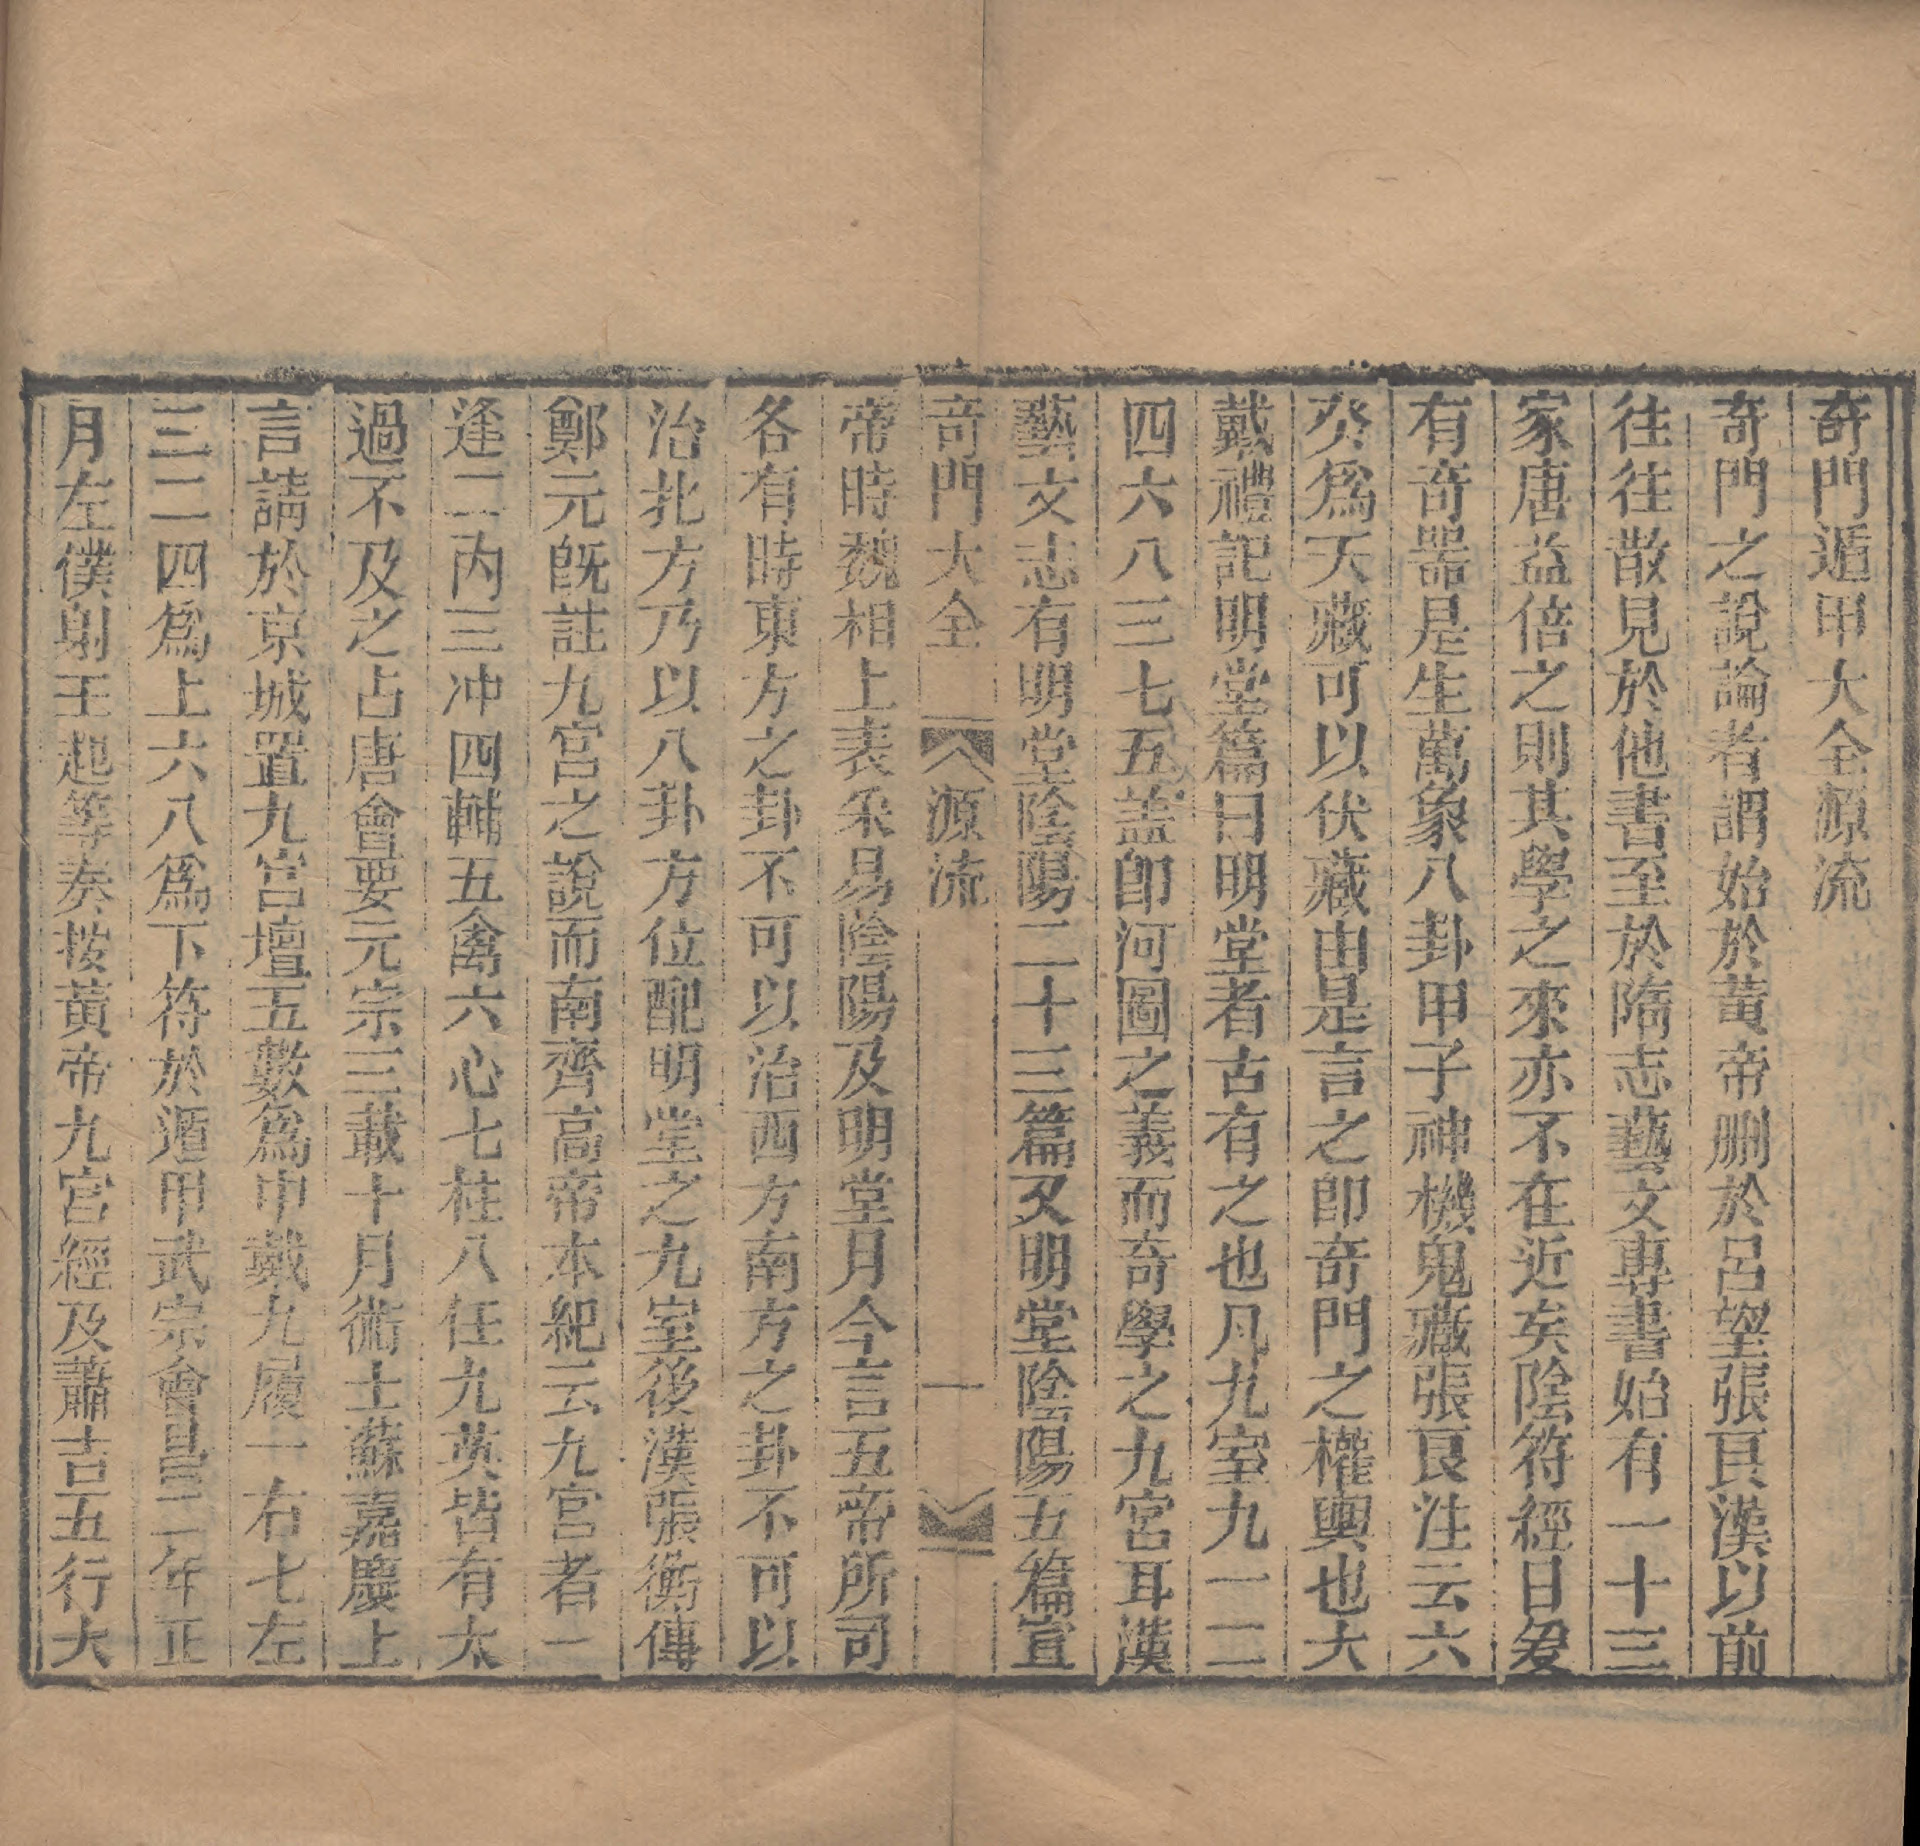 奇門遁甲大全源流
奇門之說論者謂始於黃帝刪於呂望張良漢以前
往往散見於他書至於隋志藝文專書始有一十三
家唐益倍之則其學之來亦不在近矣陰符經曰爰
有奇器是生萬象八卦甲子神機鬼藏張良注云六
癸為天藏可以伏藏由是言之即奇門之權輿也大
戴禮記明堂篇曰明堂者古有之也凡九室九一二
四六八三七五蓋即河圖之義而奇學之九宮耳漢
藝文志有明堂陰陽二十三篇又明堂陰陽五篇宣
奇門大全 源流 一
帝時魏相上表采易陰陽及明堂月今言五帝所司
各有時東方之卦不可以治西方南方之卦不可以
治北方乃以八卦方位配明堂之九室後漢張衡傳
鄭元旣註九宮之說而南齊高帝本紀云九宮者一
逢二內三冲四輔五禽六心七柱八任九英皆有太
過不及之占唐會要元宗三載十月術士蘇嘉慶上
言請於京城置九宮壇五數為中戴九履一右七左
三二四為上六八為下符於遁甲武宗會昌二年正
月左僕射王起等奏按黃帝九宮經及蕭吉五行大